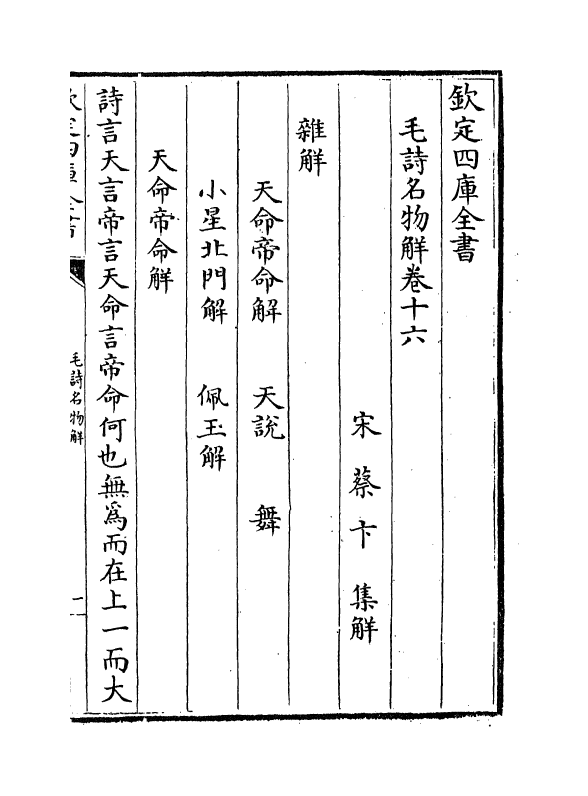 欽定四庫全書
毛詩名物解卷十六
宋 蔡卞 集解
雜解
天命帝命解 天說 舞
小星北門解 佩玉解
天命帝命解
詩言天言帝言天命言帝命何也無爲而在上一而大
欽定四庫全書
毛詩名物解
一